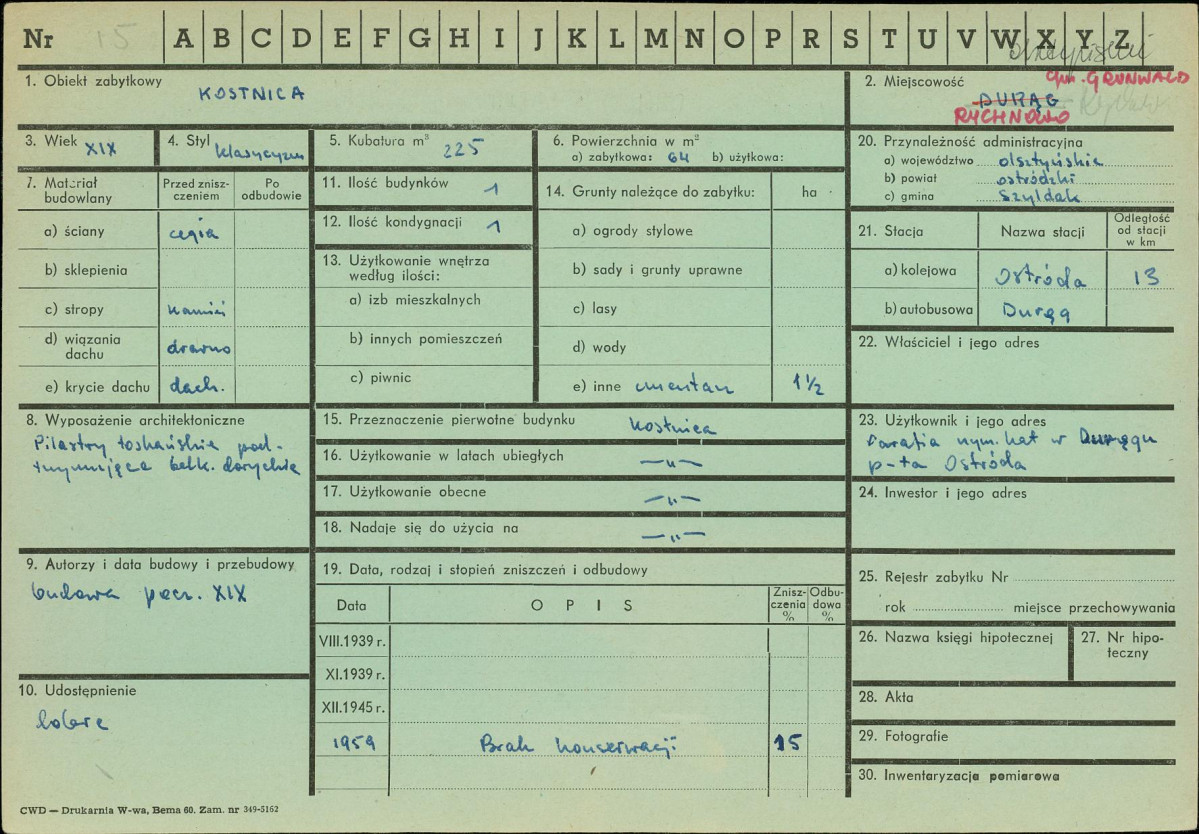 Nr 15 A B C D E F G H I J K L M N O P R S T U V W X Y Z
olsztyński
1. Obiekt zabytkowy
KOSTNICA
2. Miejscowość
gm. GRUNWALD
DURĄG
RYCHNOWO
3. Wiek XIX
4. Styl klasycyzm
5. Kubatura m³ 225
6. Powierzchnia w m²
a) zabytkowa: 64 b) użytkowa:
20. Przynależność administracyjna
a) województwo olsztyńskie
b) powiat ostródzki
c) gmina Szyldak
7. Materiał budowlany
Przed zniszczeniem
Po odbudowie
a) ściany cegła
b) sklepienia
c) stropy kamień
d) wiązania dachu drewno
e) krycie dachu dach.
11. Ilość budynków 1
12. Ilość kondygnacji 1
13. Użytkowanie wnętrza
według ilości:
a) izb mieszkalnych
b) innych pomieszczeń
c) piwnic
14. Grunty należące do zabytku: ha
a) ogrody stylowe
b) sady i grunty uprawne
c) lasy
d) wody
e) inne cmentarz 1½
21. Stacja
Nazwa stacji
Odległość
od stacji
w km
a) kolejowa Ostróda 13
b) autobusowa Durąg
22. Właściciel i jego adres
8. Wyposażenie architektoniczne
Pilastry toskańskie pod-
trzymujące belk. doryckie
15. Przeznaczenie pierwotne budynku kostnica
16. Użytkowanie w latach ubiegłych —„—
17. Użytkowanie obecne —„—
18. Nadaje się do użycia na —„—
23. Użytkownik i jego adres
Parafia rzym. kat w Durągu
p-ta Ostróda
24. Inwestor i jego adres
9. Autorzy i data budowy i przebudowy
budowa pocz. XIX
10. Udostępnienie
dobre
19. Data, rodzaj i stopień zniszczeń i odbudowy
Data
OPIS
Znisz-
czenia
%
Odbu-
dowa
%
VIII.1939 r.
XI.1939 r.
XII.1945 r.
1959 Brak konserwacji 15
25. Rejestr zabytku Nr
rok miejsce przechowywania
26. Nazwa księgi hipotecznej
27. Nr hipo-
teczny
28. Akta
29. Fotografie
30. Inwentaryzacja pomiarowa
CWD — Drukarnia W-wa, Bema 60. Zam. nr 349-5162